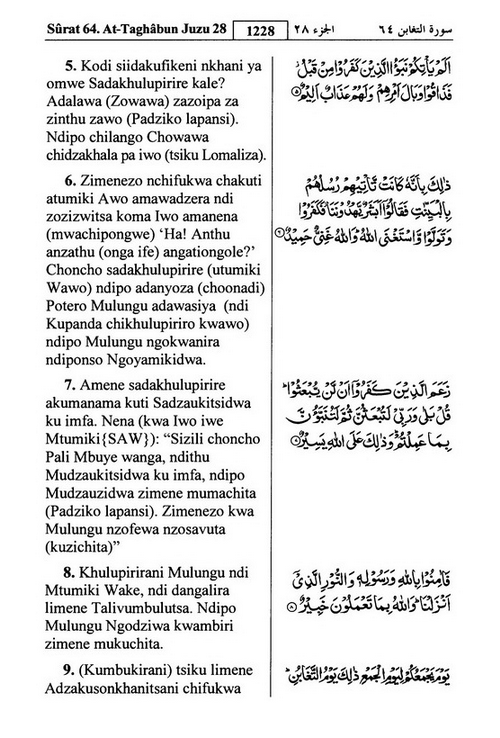 Sûrat 64. At-Taghâbun Juzu 28
1228
الجزء ٢٨
سورة التغابن ٦٤
5. Kodi siidakufikeni nkhani ya
omwe Sadakhulupirire kale?
Adalawa (Zowawa) zazoipa za
zinthu zawo (Padziko lapansi).
Ndipo chilango Chowawa
chidzakhala pa iwo (tsiku Lomaliza).
اَلَمْ يَاْتِكُمْ نَبَؤُا الَّذِيْنَ كَفَرُوْا مِنْ قَبْلُ
فَذَاقُوْا وَبَالَ اَمْرِهِمْ وَلَهُمْ عَذَابٌ اَلِيْمٌ ۝٥
6. Zimenezo nchifukwa chakuti
atumiki Awo amawadzera ndi
zozizwitsa koma Iwo amanena
(mwachipongwe) ‘Ha! Anthu
anzathu (onga ife) angationgole?’
Choncho sadakhulupirire (utumiki
Wawo) ndipo adanyoza (choonadi)
Potero Mulungu adawasiya (ndi
Kupanda chikhulupiriro kwawo)
ndipo Mulungu ngokwanira
ndiponso Ngoyamikidwa.
ذٰلِكَ بِاَنَّهٗ كَانَتْ تَّاْتِيْهِمْ رُسُلُهُمْ
بِالْبَيِّنٰتِ فَقَالُوْٓا اَبَشَرٌ يَّهْدُوْنَنَا فَكَفَرُوْا
وَتَوَلَّوْا وَّاسْتَغْنَى اللّٰهُ وَاللّٰهُ غَنِيٌّ حَمِيْدٌ ۝٦
7. Amene sadakhulupirire
akumanama kuti Sadzaukitsidwa
ku imfa. Nena (kwa Iwo iwe
Mtumiki{SAW}): “Sizili choncho
Pali Mbuye wanga, ndithu
Mudzaukitsidwa ku imfa, ndipo
Mudzauzidwa zimene mumachita
(Padziko lapansi). Zimenezo kwa
Mulungu nzofewa nzosavuta
(kuzichita)”
زَعَمَ الَّذِيْنَ كَفَرُوْٓا اَنْ لَّنْ يُّبْعَثُوْا
قُلْ بَلٰى وَرَبِّيْ لَتُبْعَثُنَّ ثُمَّ لَتُنَبَّؤُنَّ
بِمَا عَمِلْتُمْ وَذٰلِكَ عَلَى اللّٰهِ يَسِيْرٌ ۝٧
8. Khulupirirani Mulungu ndi
Mtumiki Wake, ndi dangalira
limene Talivumbulutsa. Ndipo
Mulungu Ngodziwa kwambiri
zimene mukuchita.
فَاٰمِنُوْا بِاللّٰهِ وَرَسُوْلِهٖ وَالنُّوْرِ الَّذِيْٓ
اَنْزَلْنَا وَاللّٰهُ بِمَا تَعْمَلُوْنَ خَبِيْرٌ ۝٨
9. (Kumbukirani) tsiku limene
Adzakusonkhanitsani chifukwa
يَوْمَ يَجْمَعُكُمْ لِيَوْمِ الْجَمْعِ ذٰلِكَ يَوْمُ التَّغَابُنِ